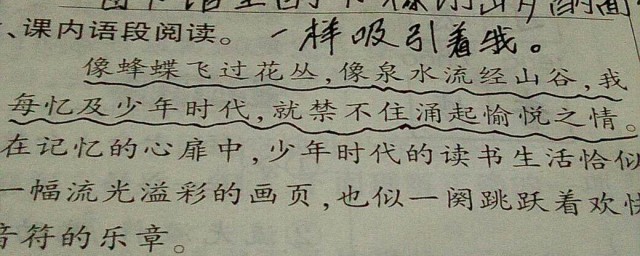 、课内语段阅读。 一样吸引着我。
像蜂蝶飞过花丛,像泉水流经山谷,我
每忆及少年时代,就禁不住涌起愉悦之情。
在记忆的心扉中,少年时代的读书生活恰似
一幅流光溢彩的画页,也似一阕跳跃着欢快
音符的乐章。